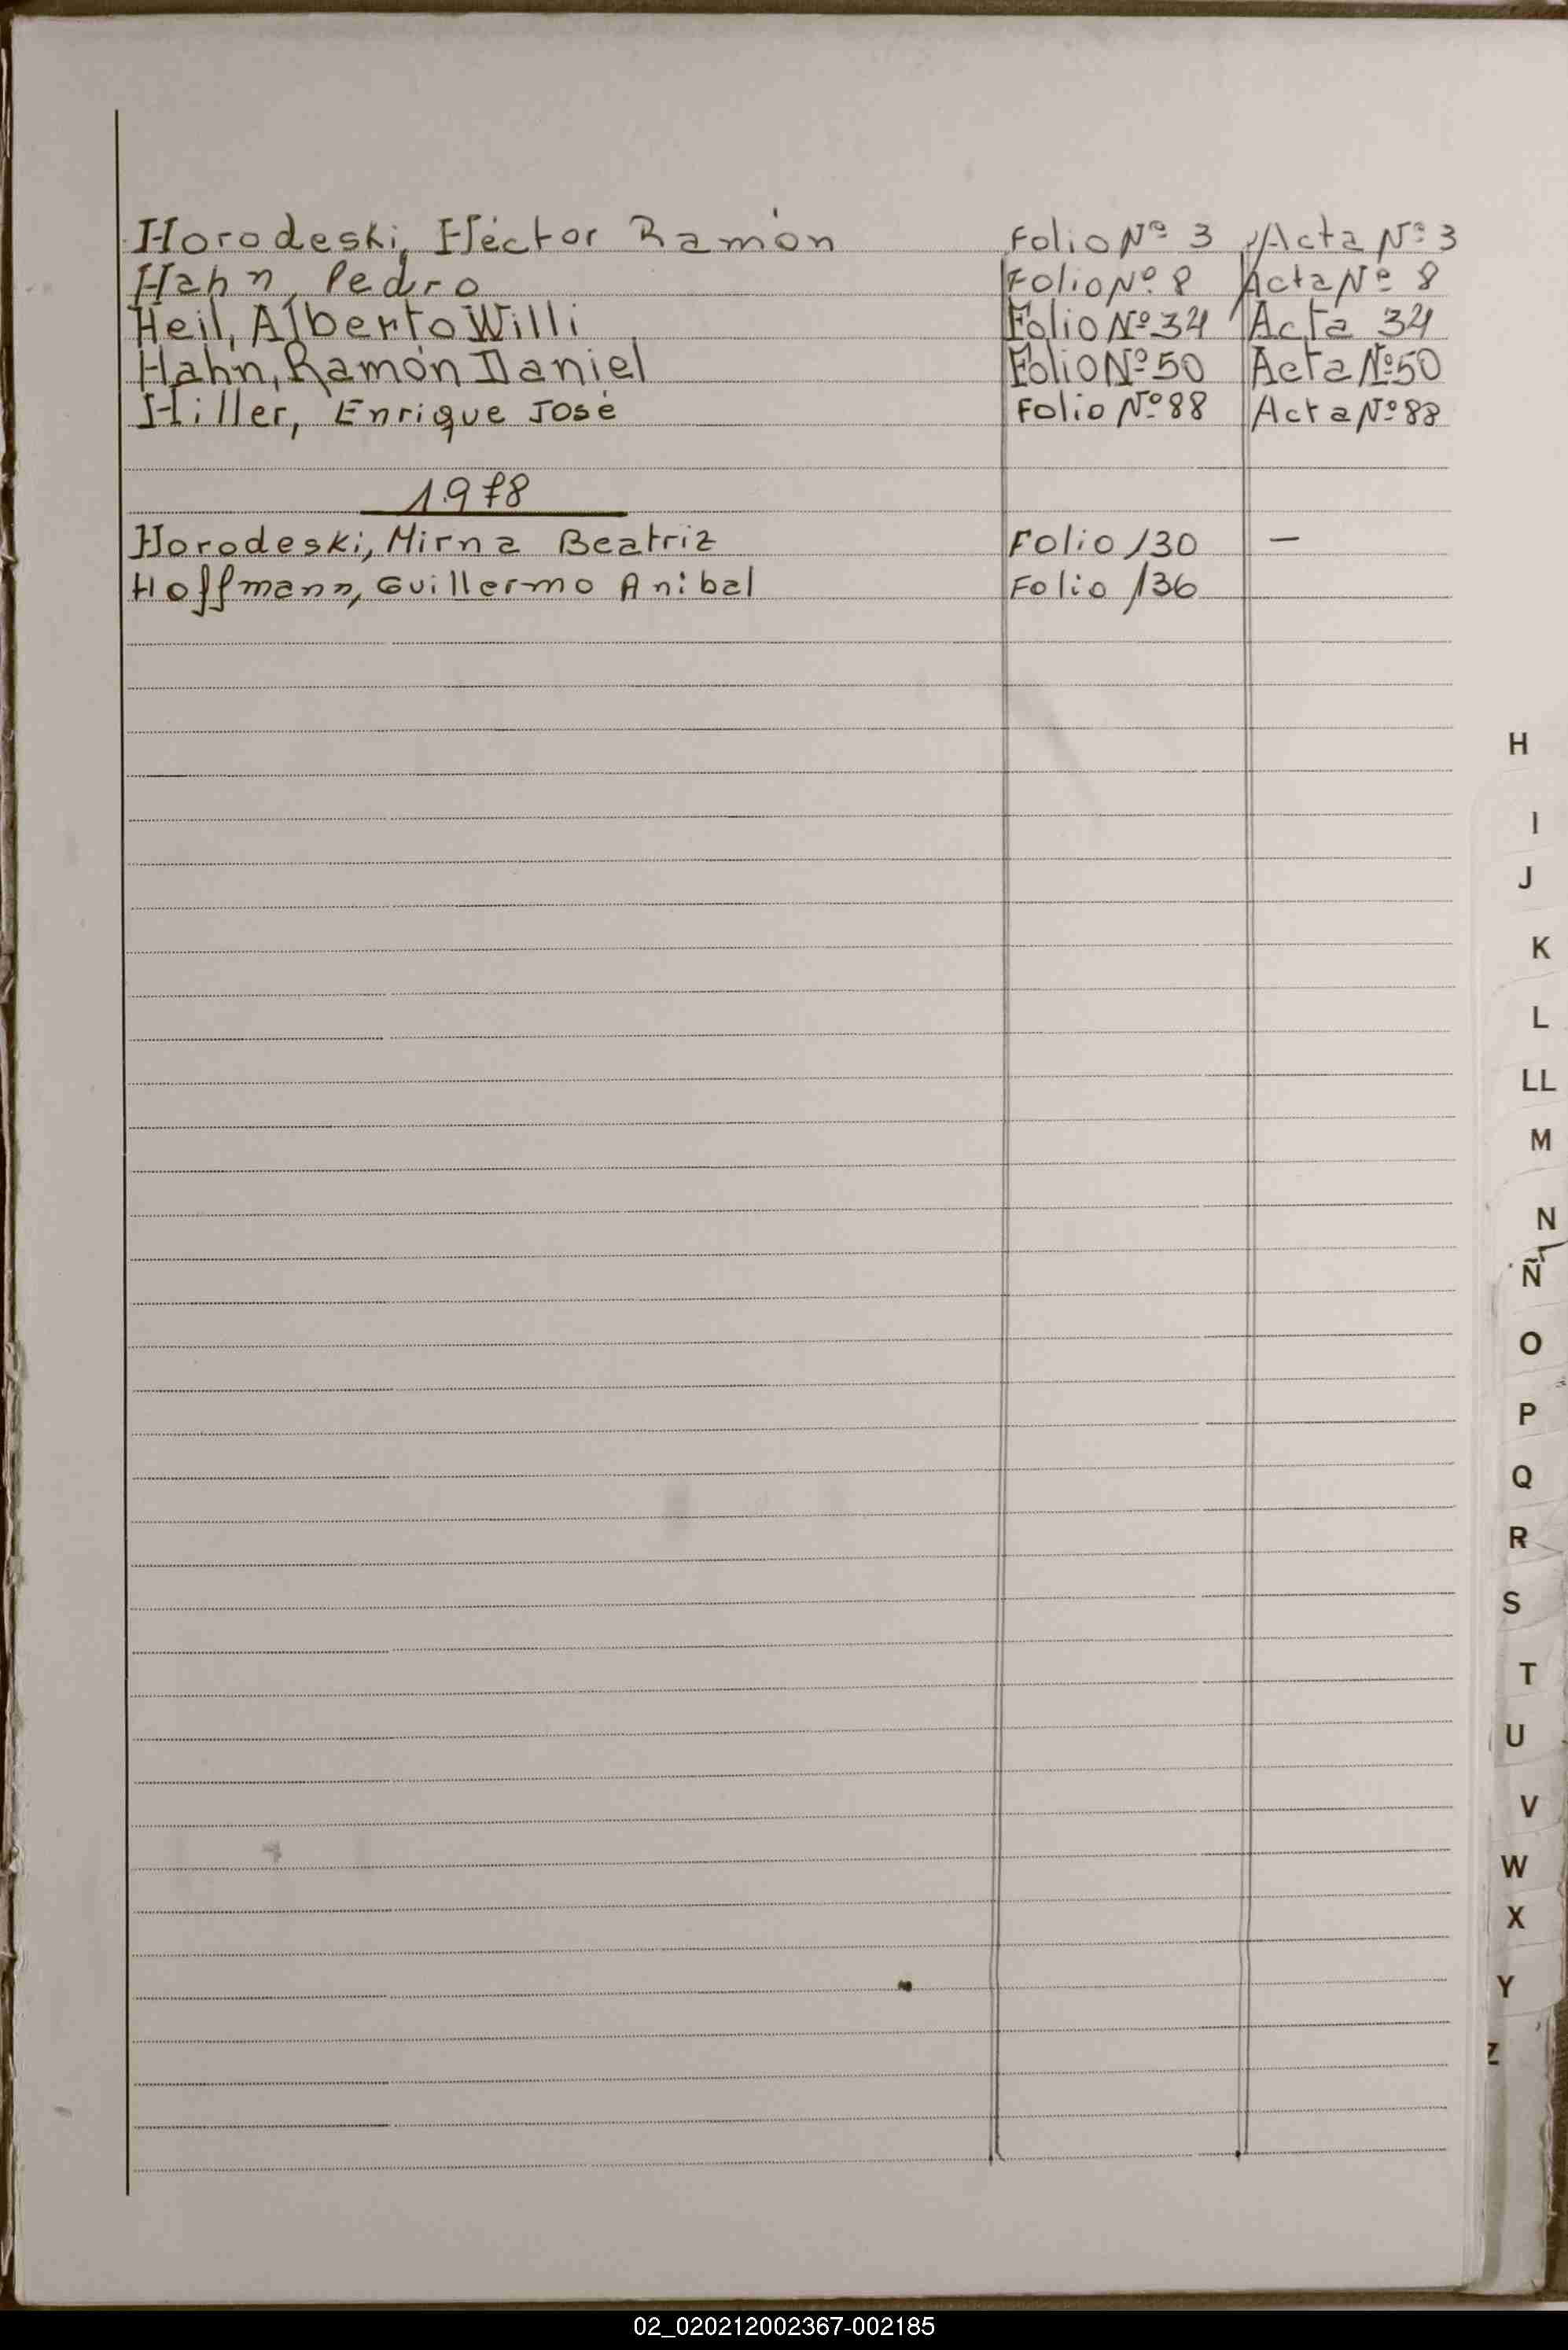 Horodeski, Héctor Ramón Folio Nº 3 Acta Nº 3
Hahn, Pedro Folio Nº 8 Acta Nº 8
Heil, Alberto Willi Folio Nº 34 Acta 34
Hahn, Ramón Daniel Folio Nº 50 Acta Nº 50
Hiller, Enrique José Folio Nº 88 Acta Nº 88
1978
Horodeski, Mirna Beatriz Folio 130 —
Hoffmann, Guillermo Anibal Folio 136
H
I
J
K
L
LL
M
N
Ñ
O
P
Q
R
S
T
U
V
W
X
Y
Z
02_020212002367-002185